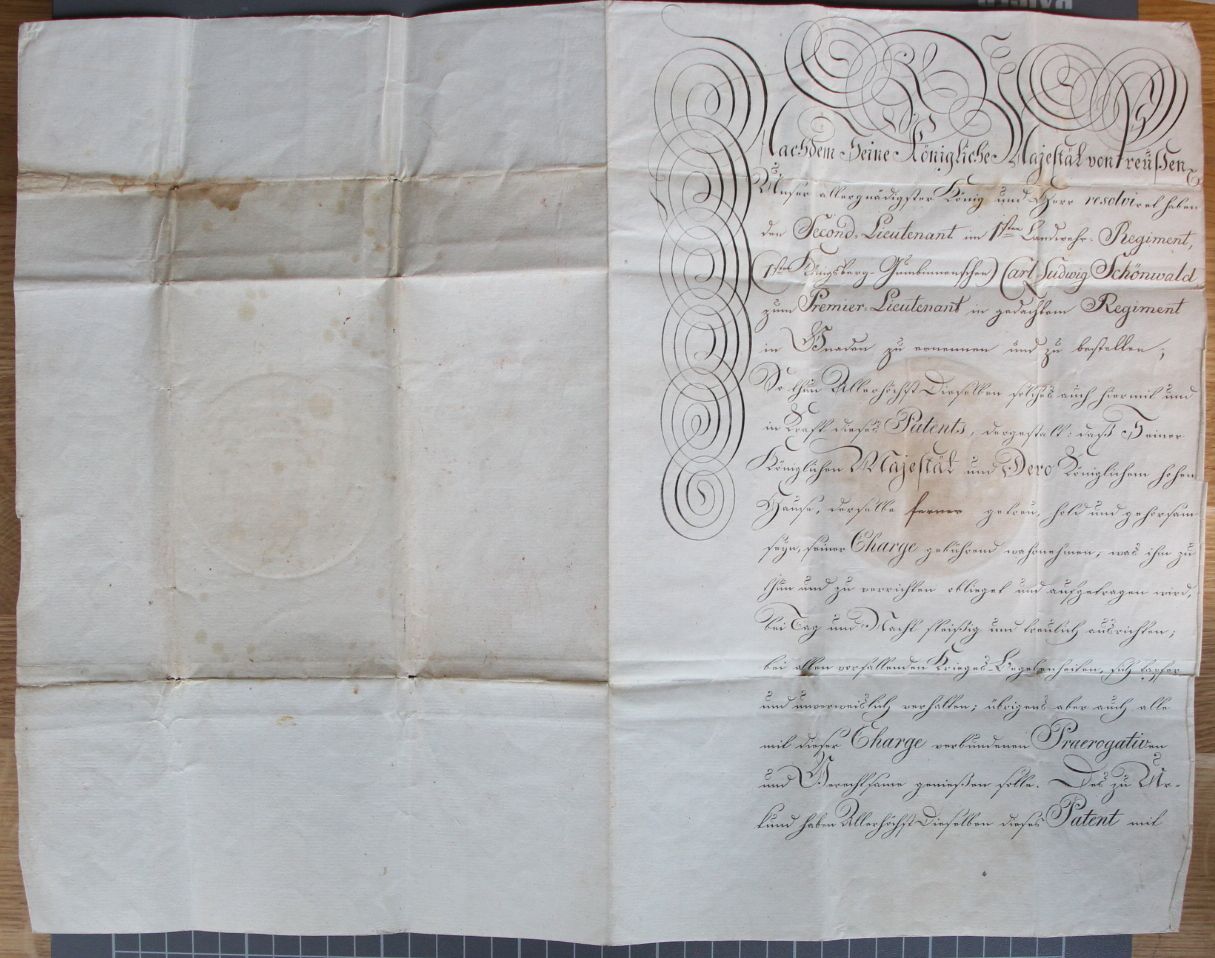 Nachdem Seine Königliche Majestät von Preußen
Unser allergnädigster König und Herr resolviret haben
den Second-Lieutenant im 1sten Landwehr-Regiment,
(1sten Königsberg-Gumbinnenschen) Carl Ludwig Schönwald
zum Premier-Lieutenant in gedachtem Regiment
in Gnaden zu ernennen und zu bestellen;
So thun Allerhöchst Dieselben solches auch hiermit und
in Kraft dieses Patents, dergestalt: daß Seiner
Königlichen Majestät und Dero Königlichem hohen
Hause, derselbe ferner getreu, hold und gehorsam
seyn, seiner Charge gebührend wahrnehmen, was ihm zu
thun und zu verrichten oblieget und aufgetragen wird,
bei Tag und Nacht fleißig und treulich ausrichten;
bei allen vorfallenden Krieges-Begebenheiten, sich tapfer
und unverweislich verhalten; übrigens aber auch alle
mit dieser Charge verbundenen Praerogativen
und Gerechtsame genießen solle. Des zu Ur-
kund haben Allerhöchst Dieselben dieses Patent mit